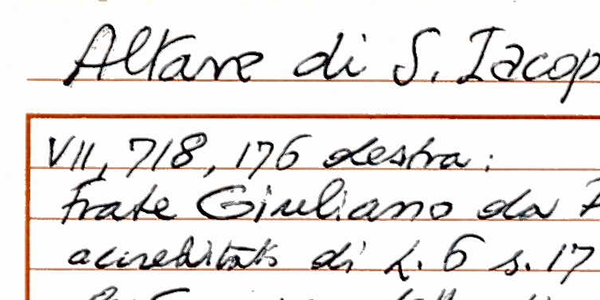 Altare di S. Iacop
VII, 718, 176 destra:
Frate Giuliano da
accreditato di L. 6 s. 17